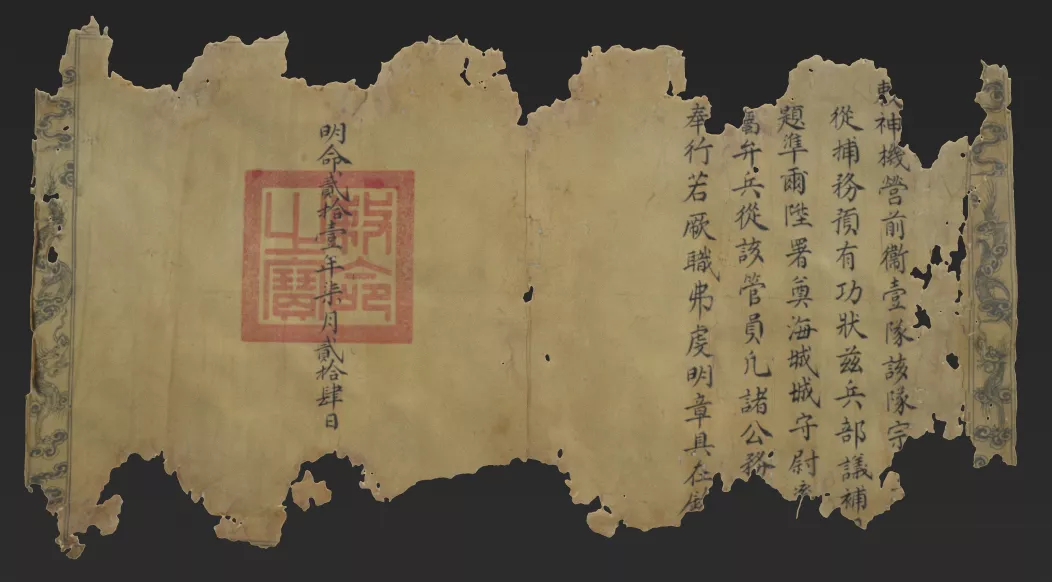 敕神機營前衞壹隊該隊宗
從捕務預有功狀茲兵部議補
題準爾陞署奠海城城守尉率
屬弁兵從該管員凡諸公務
奉行若厥職弗虔明章具在
明命貳拾壹年柒月貳拾肆日
敕命之寶